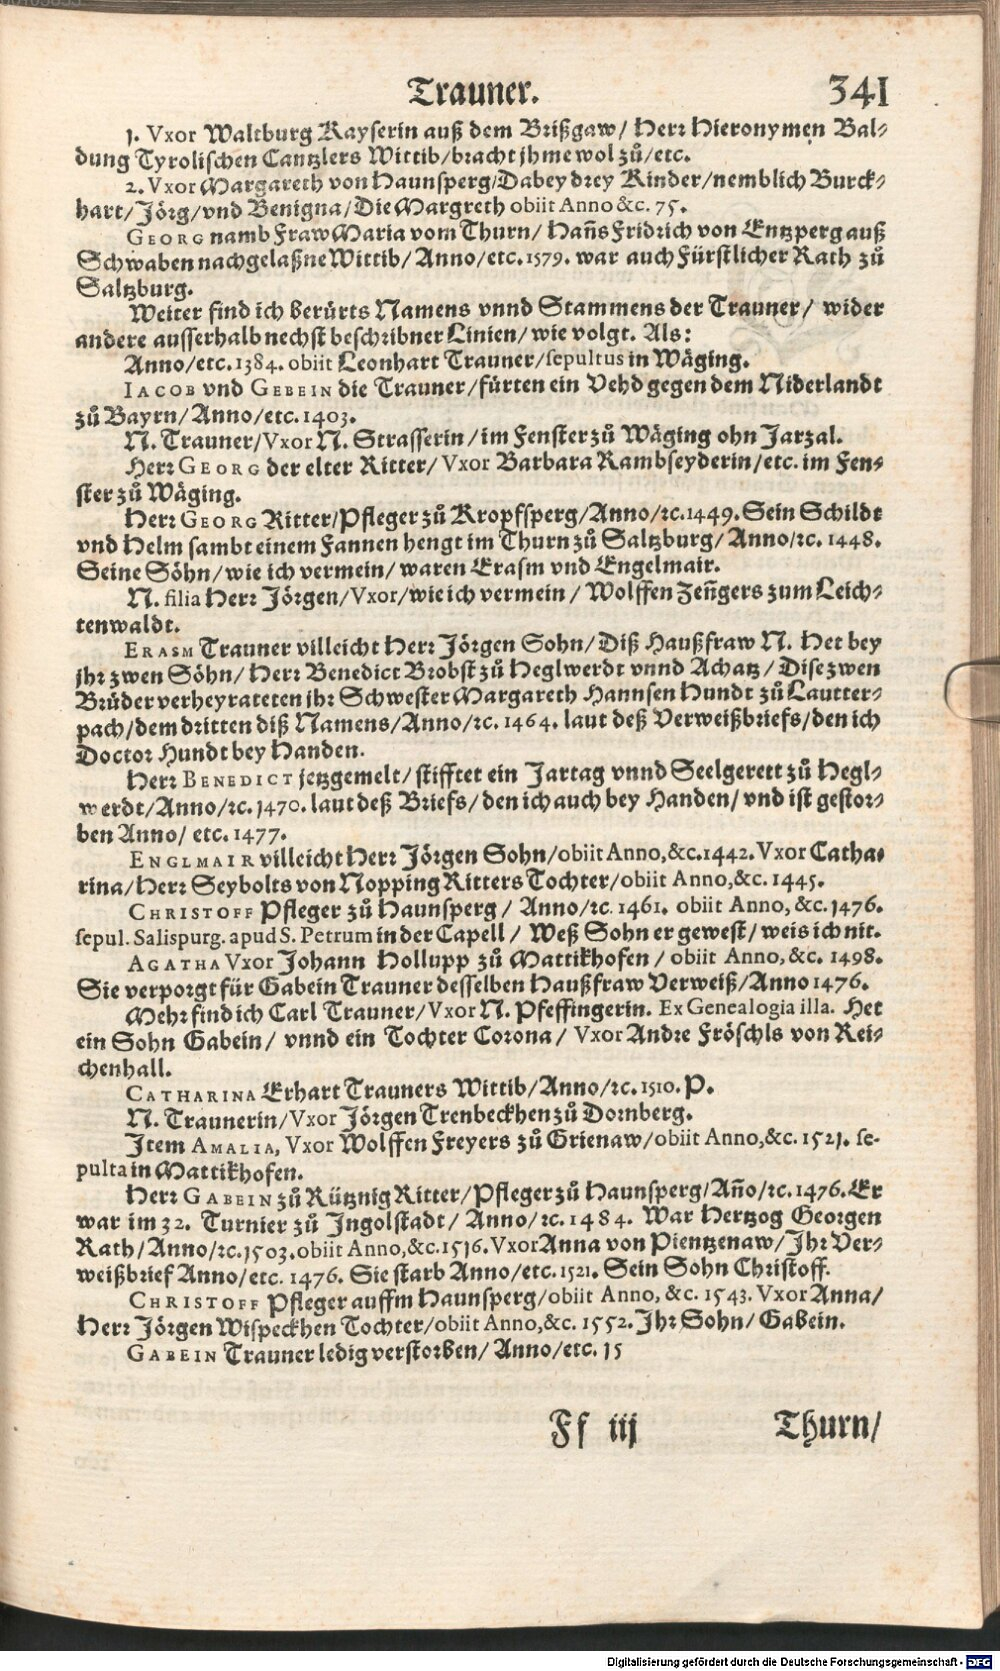 Trauner. 341
1. Vxor Waltburg Kayserin auß dem Brißgaw/ Herr Hieronymen Bal-
dung Tyrolischen Cantzlers Wittib/bracht jhme wol zů/etc.
2. Vxor Margareth von Haunsperg/Dabey drey Kinder/nemblich Burck-
hart/Jörg/vnd Benigna/Die Margreth obiit Anno &c. 75.
GEORG namb Fraw Maria vom Thurn/ Hañs Fridrich von Entzperg auß
Schwaben nachgelaßne Wittib/ Anno/etc. 1579. war auch Fürstlicher Rath zů
Saltzburg.
Weiter find ich berürts Namens vnnd Stammens der Trauner/ wider
andere ausserhalb nechst beschribner Linien/ wie volgt. Als:
Anno/etc. 1384. obiit Leonhart Trauner/sepultus in Wäging.
IACOB vnd GEBEIN die Trauner/fürten ein Vehd gegen dem Niderlandt
zů Bayrn/Anno/etc. 1403.
N. Trauner/Vxor N. Strasserin/im Fenster zů Wäging ohn Jarzal.
Herr GEORG der elter Ritter/ Vxor Barbara Rambseyderin/etc. im Fen-
ster zů Wäging.
Herr GEORG Ritter/Pfleger zů Kropfsperg/Anno/ꝛc. 1449. Sein Schildt
vnd Helm sambt einem Fannen hengt im Thurn zů Saltzburg/ Anno/ꝛc. 1448.
Seine Söhn/wie ich vermein/waren Erasm vnd Engelmair.
N. filia Herr Jörgen/Vxor/wie ich vermein/ Wolffen Zeñgers zum Leich-
tenwaldt.
ERASM Trauner villeicht Herr Jörgen Sohn/Diß Haußfraw N. Het bey
jhr zwen Söhn/ Herr Benedict Brobst zů Heglwerdt vnnd Achatz/ Dise zwen
Brüder verheyrateten jhr Schwester Margareth Hannsen Hundt zů Lautter-
pach/dem dritten diß Namens/Anno/ꝛc. 1464. laut deß Verweißbriefs/den ich
Doctor Hundt bey Handen.
Herr BENEDICT jetzgemelt/ stifftet ein Jartag vnnd Seelgerett zů Hegl-
werdt/Anno/ꝛc. 1470. laut deß Briefs/den ich auch bey Handen/vnd ist gestor-
ben Anno/ etc. 1477.
ENGLMAIR villeicht Herr Jörgen Sohn/obiit Anno, &c. 1442. Vxor Catha-
rina/Herr Seybolts von Nopping Ritters Tochter/obiit Anno, &c. 1445.
CHRISTOFF Pfleger zů Haunsperg/ Anno/ꝛc. 1461. obiit Anno, &c. 1476.
sepul. Salispurg. apud S. Petrum in der Capell/ Weß Sohn er gewest/weis ich nit.
AGATHA Vxor Johann Hollupp zů Mattikhofen/ obiit Anno, &c. 1498.
Sie verporgt für Gabein Trauner desselben Haußfraw Verweiß/Anno 1476.
Mehr find ich Carl Trauner/Vxor N. Pfeffingerin. Ex Genealogia illa. Het
ein Sohn Gabein/ vnnd ein Tochter Corona/ Vxor Andre Fröschls von Rei-
chenhall.
CATHARINA Erhart Trauners Wittib/Anno/ꝛc. 1510. P.
N. Traunerin/Vxor Jörgen Trenbeckhen zů Dornberg.
Item AMALIA, Vxor Wolffen Freyers zů Grienaw/obiit Anno, &c. 1521. se-
pulta in Mattikhofen.
Herr GABEIN zů Rütznig Ritter/Pfleger zů Haunsperg/Año/ꝛc. 1476. Er
war im 32. Turnier zů Ingolstadt/ Anno/ꝛc. 1484. War Hertzog Georgen
Rath/Anno/ꝛc. 1503. obiit Anno, &c. 1516. Vxor Anna von Pientzenaw/Ihr Ver-
weißbrief Anno/etc. 1476. Sie starb Anno/etc. 1521. Sein Sohn Christoff.
CHRISTOFF Pfleger auffm Haunsperg/obiit Anno, &c. 1543. Vxor Anna/
Herr Jörgen Wispeckhen Tochter/obiit Anno, &c. 1552. Ihr Sohn/ Gabein.
GABEIN Trauner ledig verstorben/ Anno/etc. 15
Ff iij Thurn/
Digitalisierung gefördert durch die Deutsche Forschungsgemeinschaft - DFG